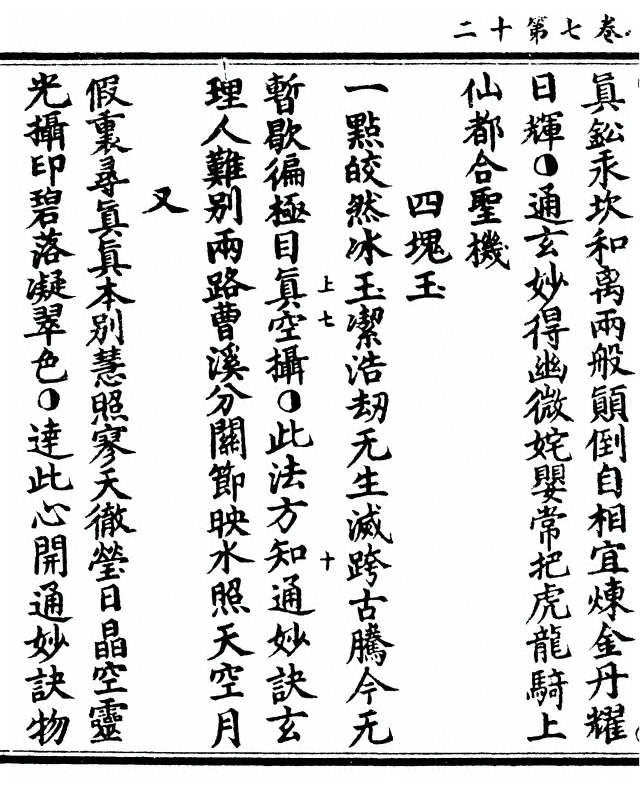 卷七第十二
眞鈆汞坎和离兩般顚倒自相宜煉金丹耀
日輝◐通玄妙得幽微姹嬰常把虎龍騎上
仙都合聖機
四塊玉
一點皎然冰玉潔浩劫无生滅跨古騰今无
上七
十
暫歇徧極目眞空攝◐此法方知通妙訣玄
理人難別兩路曹溪分關節映水照天空月
又
假裏尋眞眞本別慧照寥天徹瑩日晶空靈
光攝印碧落凝翠色◐達此心開通妙訣物